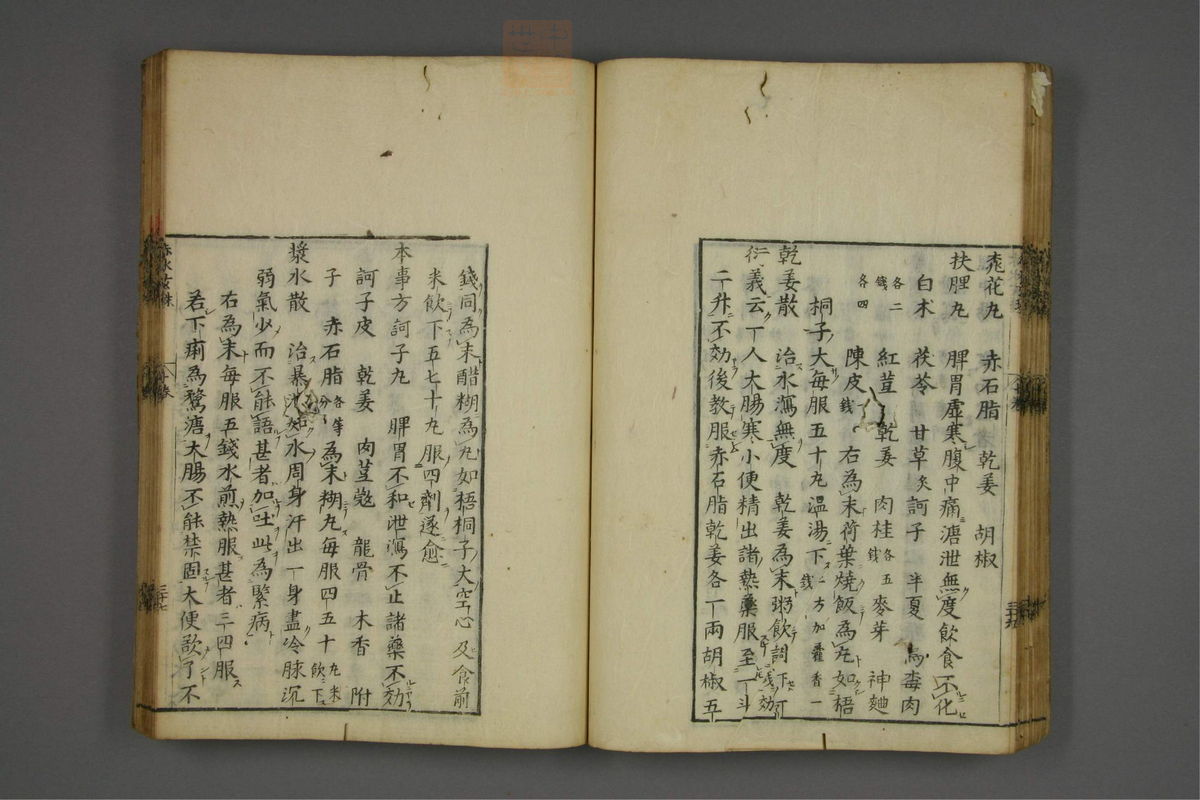 桃花丸　赤石脂　乾姜　胡椒
扶脾丸　脾胃虚寒腹中痛溏泄無度飲食不化
白术 各二錢 茯苓 甘草炙 訶子 半夏 烏毒肉
各四 紅荳 乾姜 肉桂 各五錢 麥芽 神麯
陳皮 錢 右為末荷葉燒飯為丸如梧
桐子大每服五十丸温湯下 一方加藿香一錢
乾姜散　治水瀉無度　乾姜為末粥飲調下一錢効
衍義云一人大腸寒小便精出諸熱藥服至一斗
二升不効後教服赤石脂乾姜各一兩胡椒五
錢同為末醋糊為丸如梧桐子大空心及食前
米飲下五七十丸服四劑遂愈
本事方訶子丸　脾胃不和泄瀉不止諸藥不効
訶子皮　乾姜　肉荳蔻　龍骨　木香　附
子　赤石脂 各等分 為末糊丸每服四五十 丸米飲下
漿水散　治暴泄如水周身汗出一身盡冷脉沉
弱氣少而不能語甚者加吐此為緊病
右為末每服五錢水煎熱服甚者三四服
若下痢為鶩溏大腸不能禁固大便欲了不